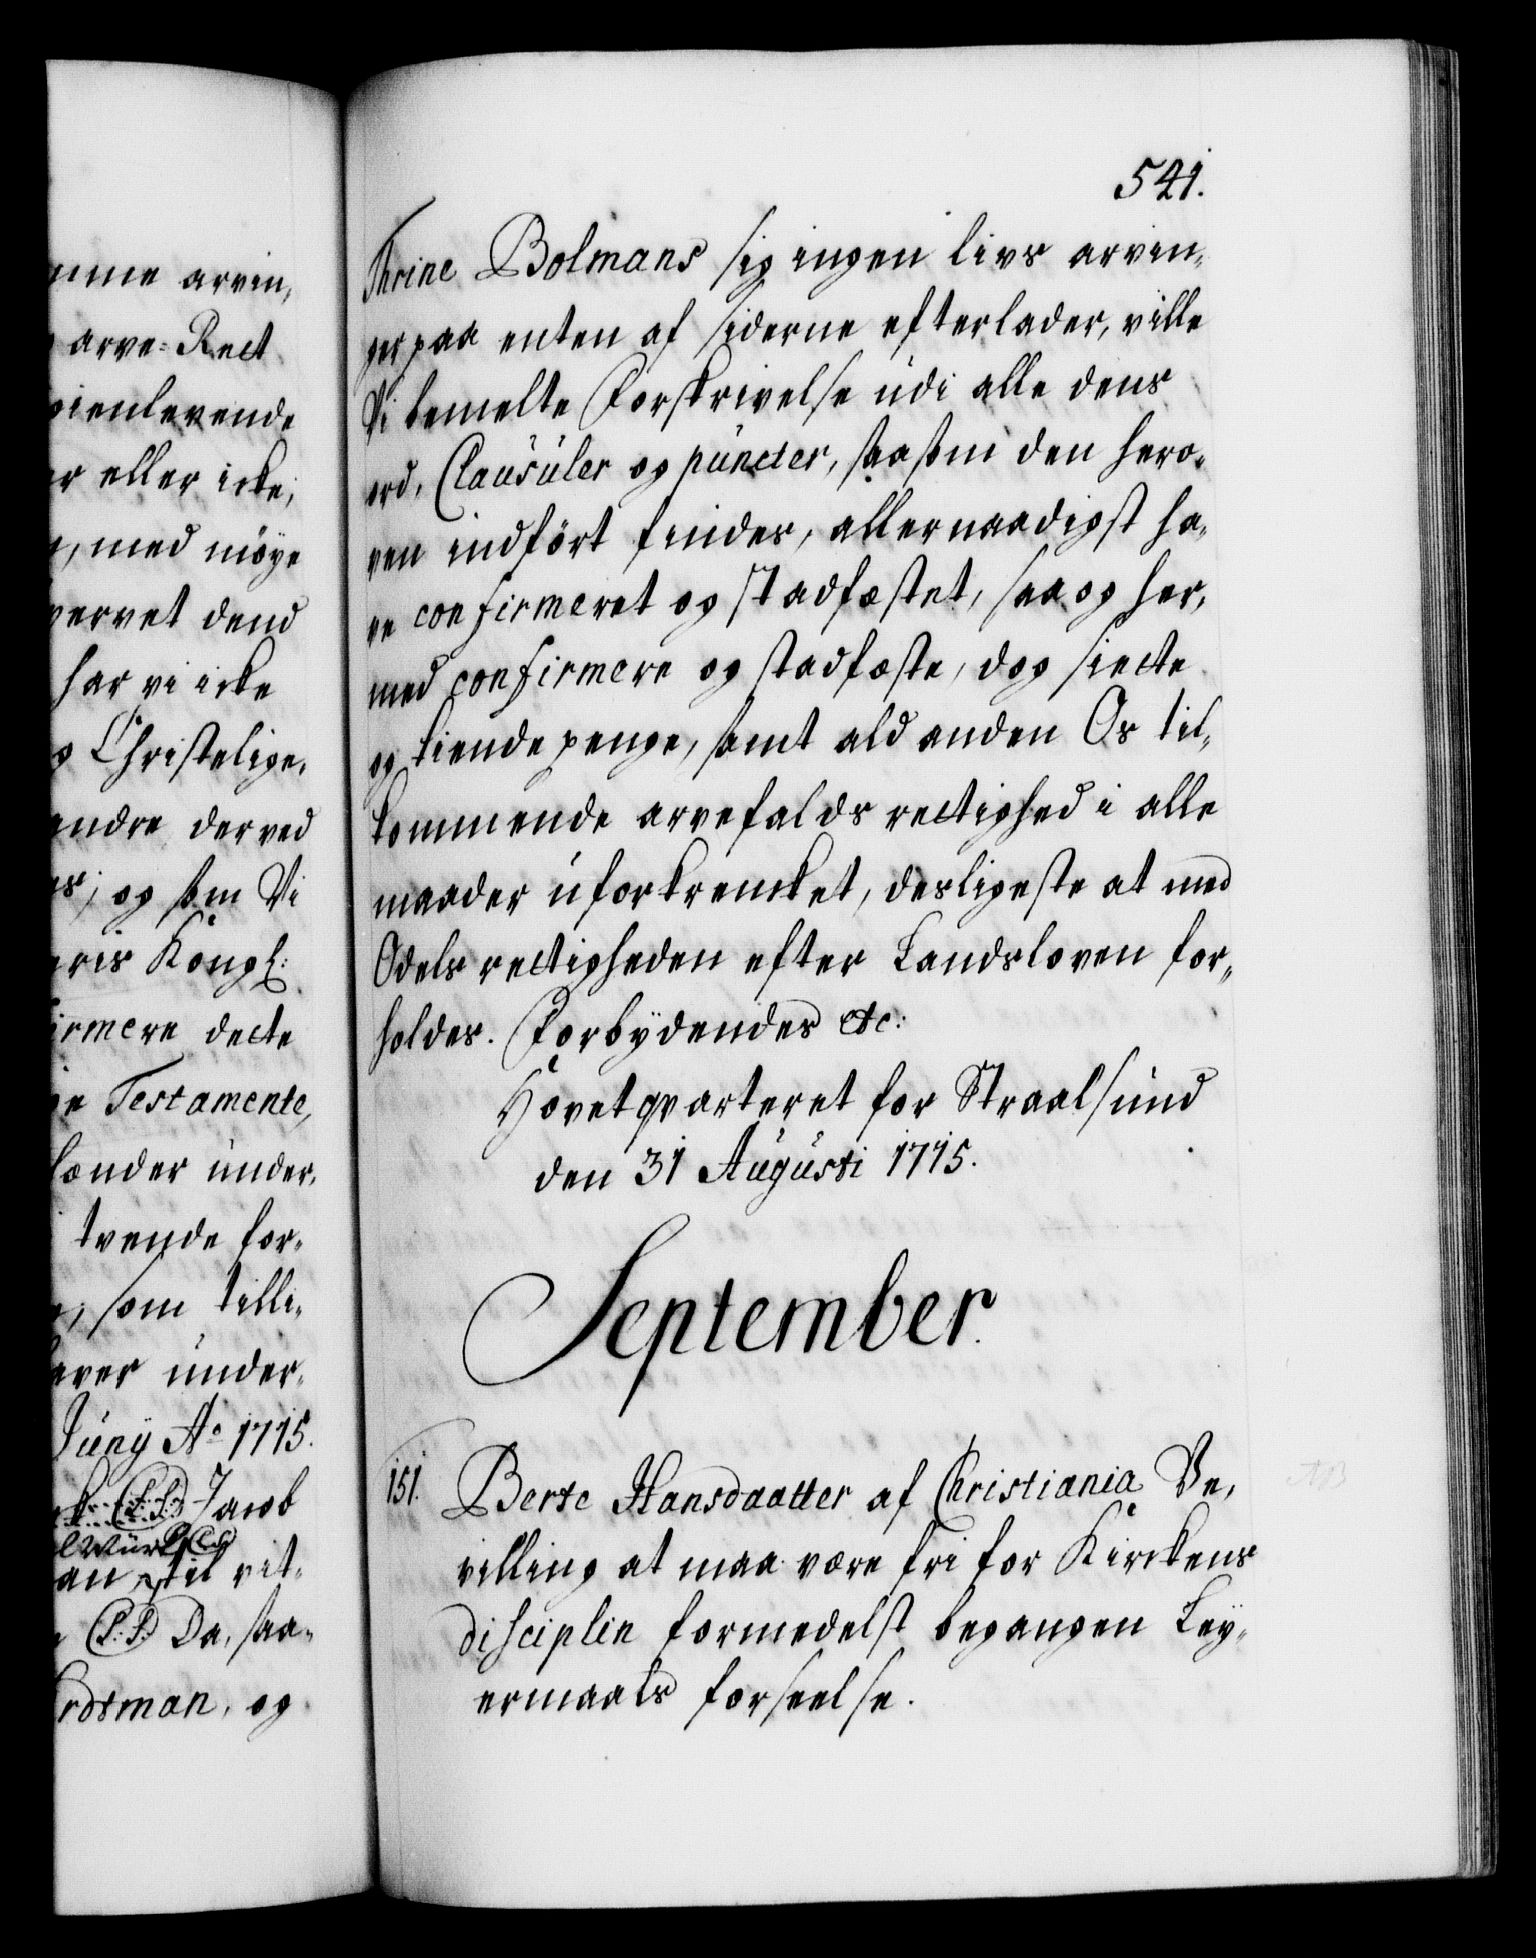 mme arvin,
arve-Rect
ienlevende
r eller icke,
, med nöye
vervet dend
har vi icke
Christelige,
andre derved
; og som Vi
Kongl:
irmere dette
Testamente,
lænder under,
tvende for,
, som tilli,
under,
Juny Ao 1715.
(L.S.) Jacob
til vit,
(L.S.) Da, saa,
rdtman, og
541.
Thrine Bolmans sig ingen livs arvin,
ger paa enten af siderne efterlader, ville
Vi bemelte Forskrivelse udi alle dens
ord, Clausuler og puncter, saasom den hero,
ven indført findes, allernaadigst ha,
ve confirmeret og stadfæstet, saa og her,
med confirmere og stadfæste, dog siette
og tiende penge, samt ald anden Os til,
kommende arvefalds rectighed i alle
maader uforkrencket, desligeste at med
Odels rectigheden efter Landsloven for,
holdes. Forbydendes etc:
Hovetqvarteret for Straalsund
den 31 Augusti 1715.
September.
151. Berte Hansdaatter af Christiania Be,
villing at maa være fri for Kirckens
disciplin formedelst begangen Ley,
ermaals forseelse.